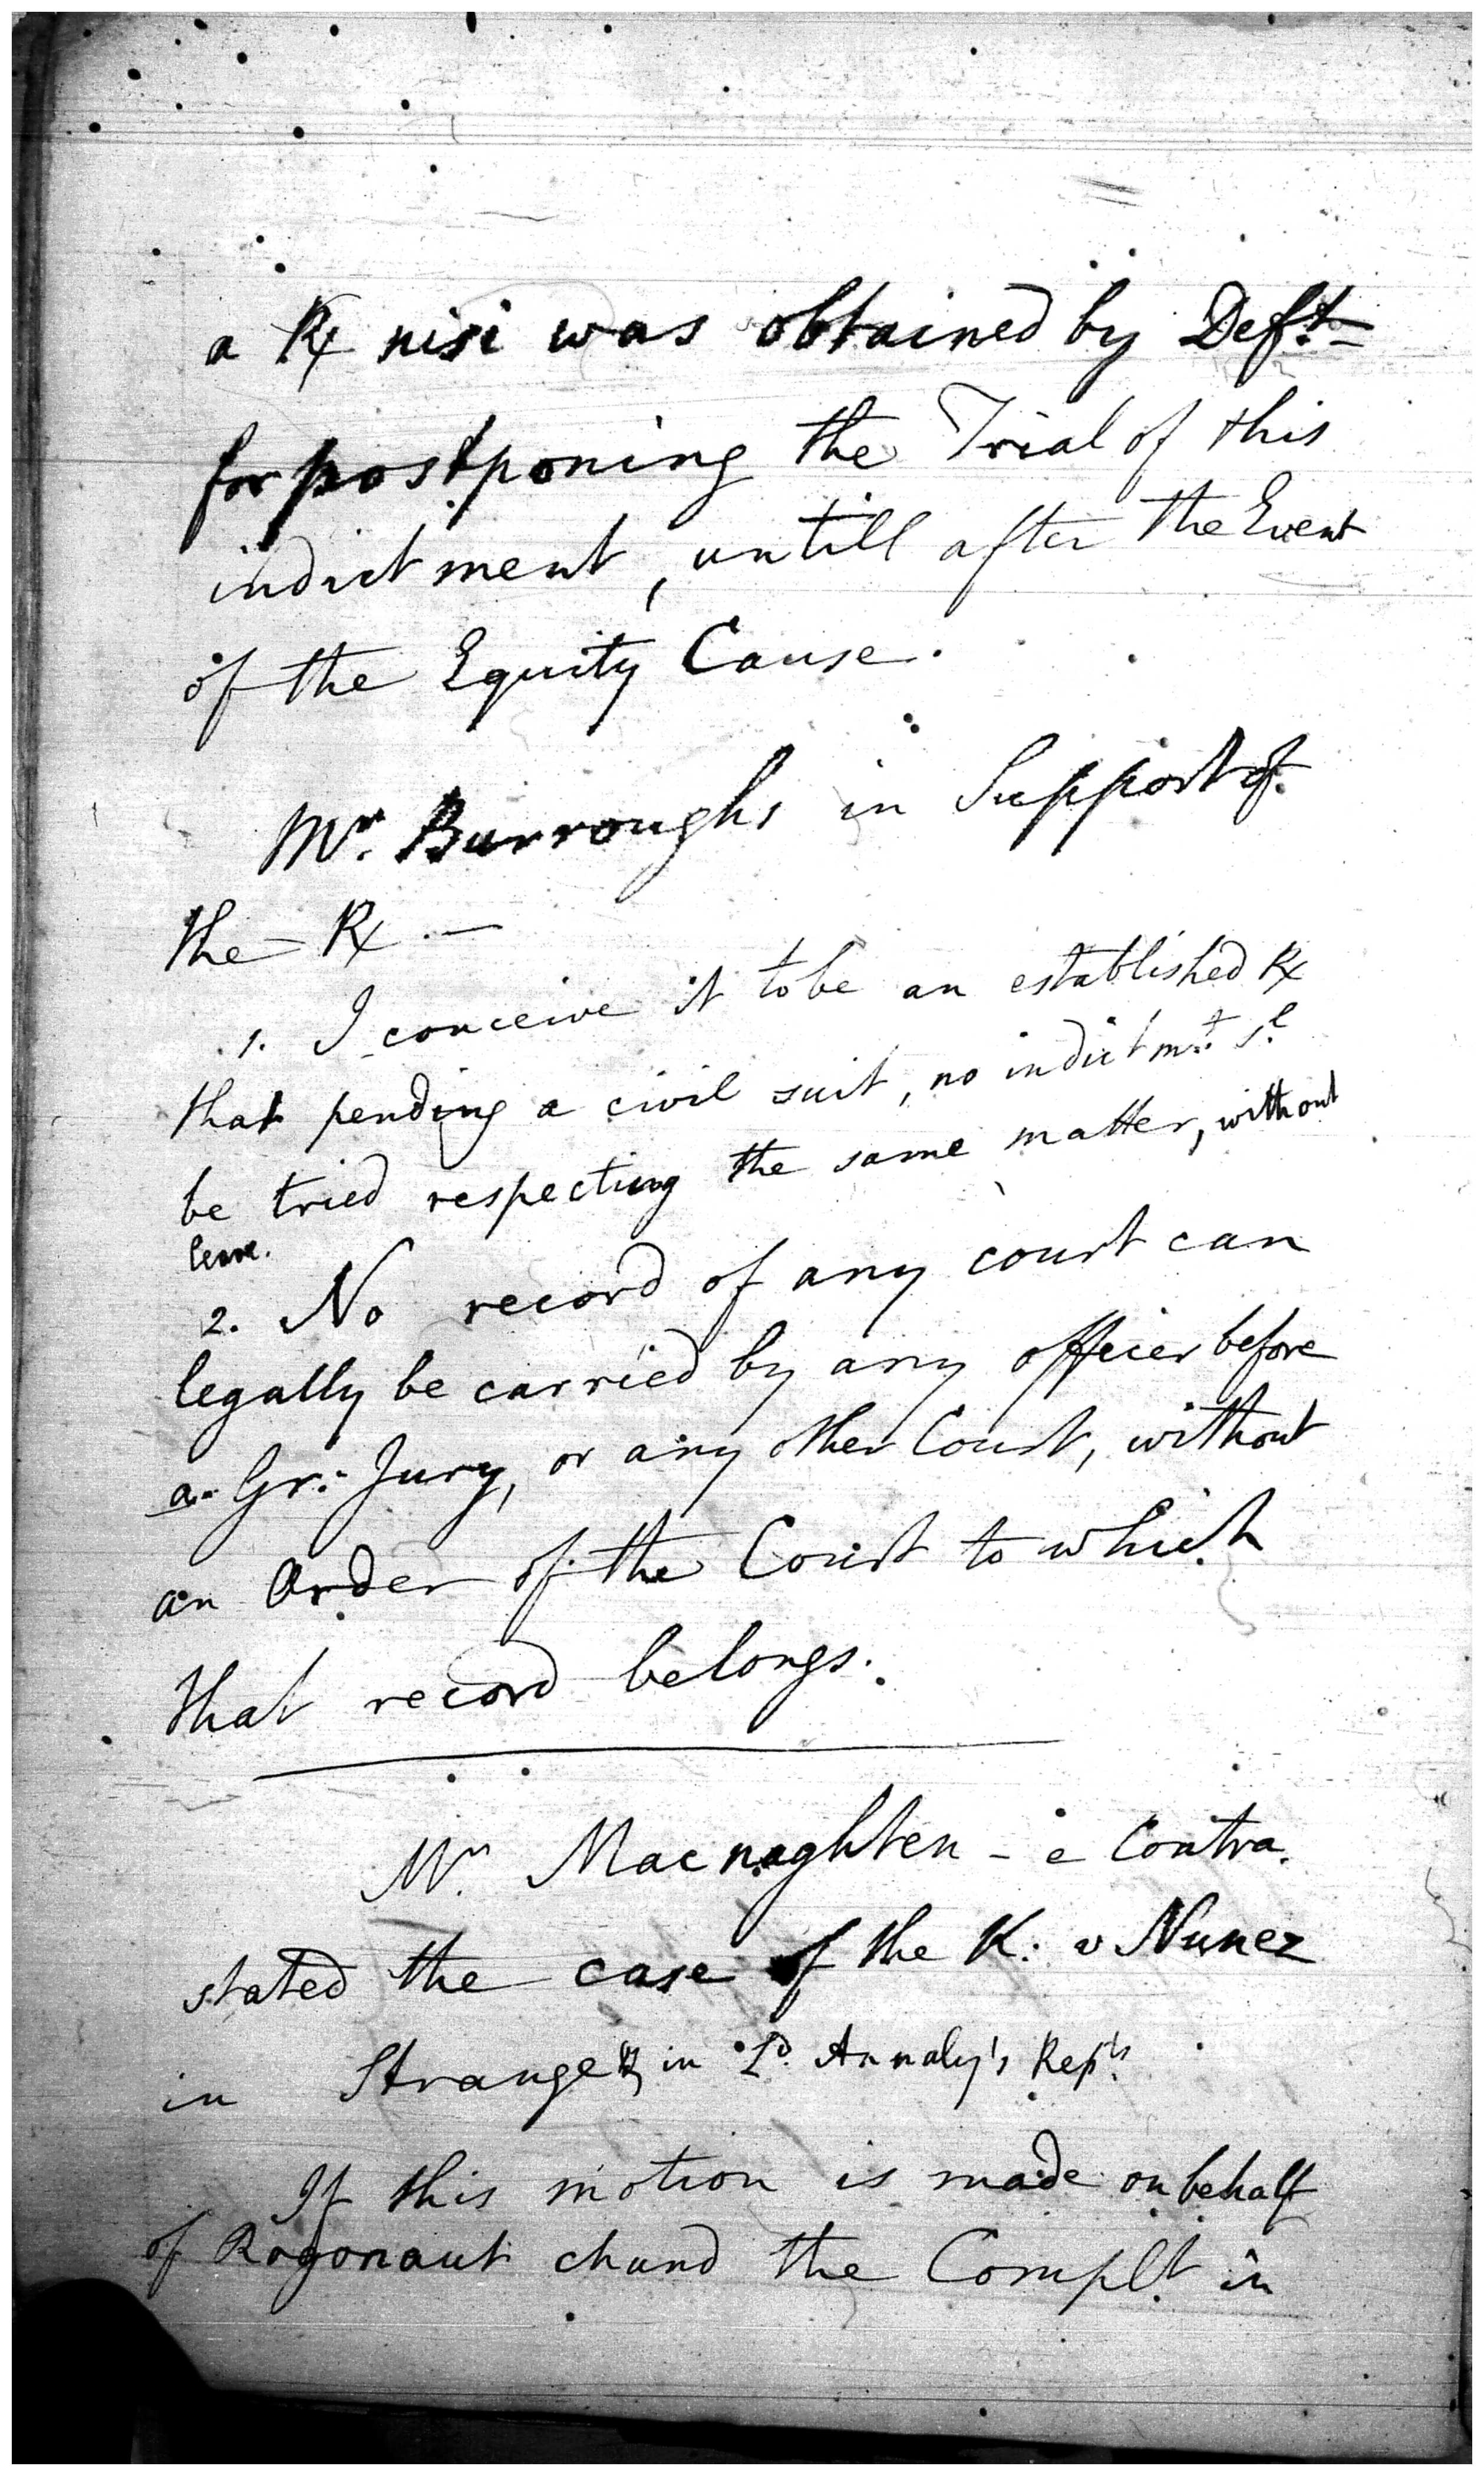 a Rx nisi was obtained by Deft.
for postponing the Trial of this
indictment, untill after the Event
of the Equity Cause.
Mr. Burroughs in Support of
the Rx. —
1. I conceive it to be an established Rx
that pending a civil suit, no indictmt. sl.
be tried respecting the same matter, without
leave.
2. No record of any court can
legally be carried by any officer before
a Gr: Jury, or any other Court, without
an Order of the Court to which
that record belongs.
Mr. Macnaghten - e Contra.
stated the case of the K: v Nunez
in Strange & in Ld. Annaly's Repts.
If this motion is made on behalf
of Rogonaut chund the Complt. in